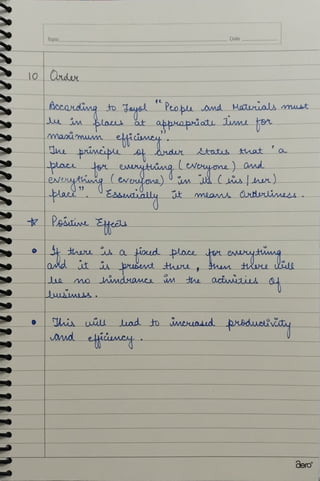 Topic
Date
10 Order
According to Fayol "People and Materials must
be in places at appropriate time for
maximum efficiency".
The principle of order states that 'a
place for everything (everyone) and
everything (everyone) in its (his/her)
place". Essentially it means Orderliness.
* Positive Effects
• If there is a fixed place for everything
and it is present there, then there will
be no hindrance in the activities of
business.
• This will lead to increased productivity
and efficiency.
aero